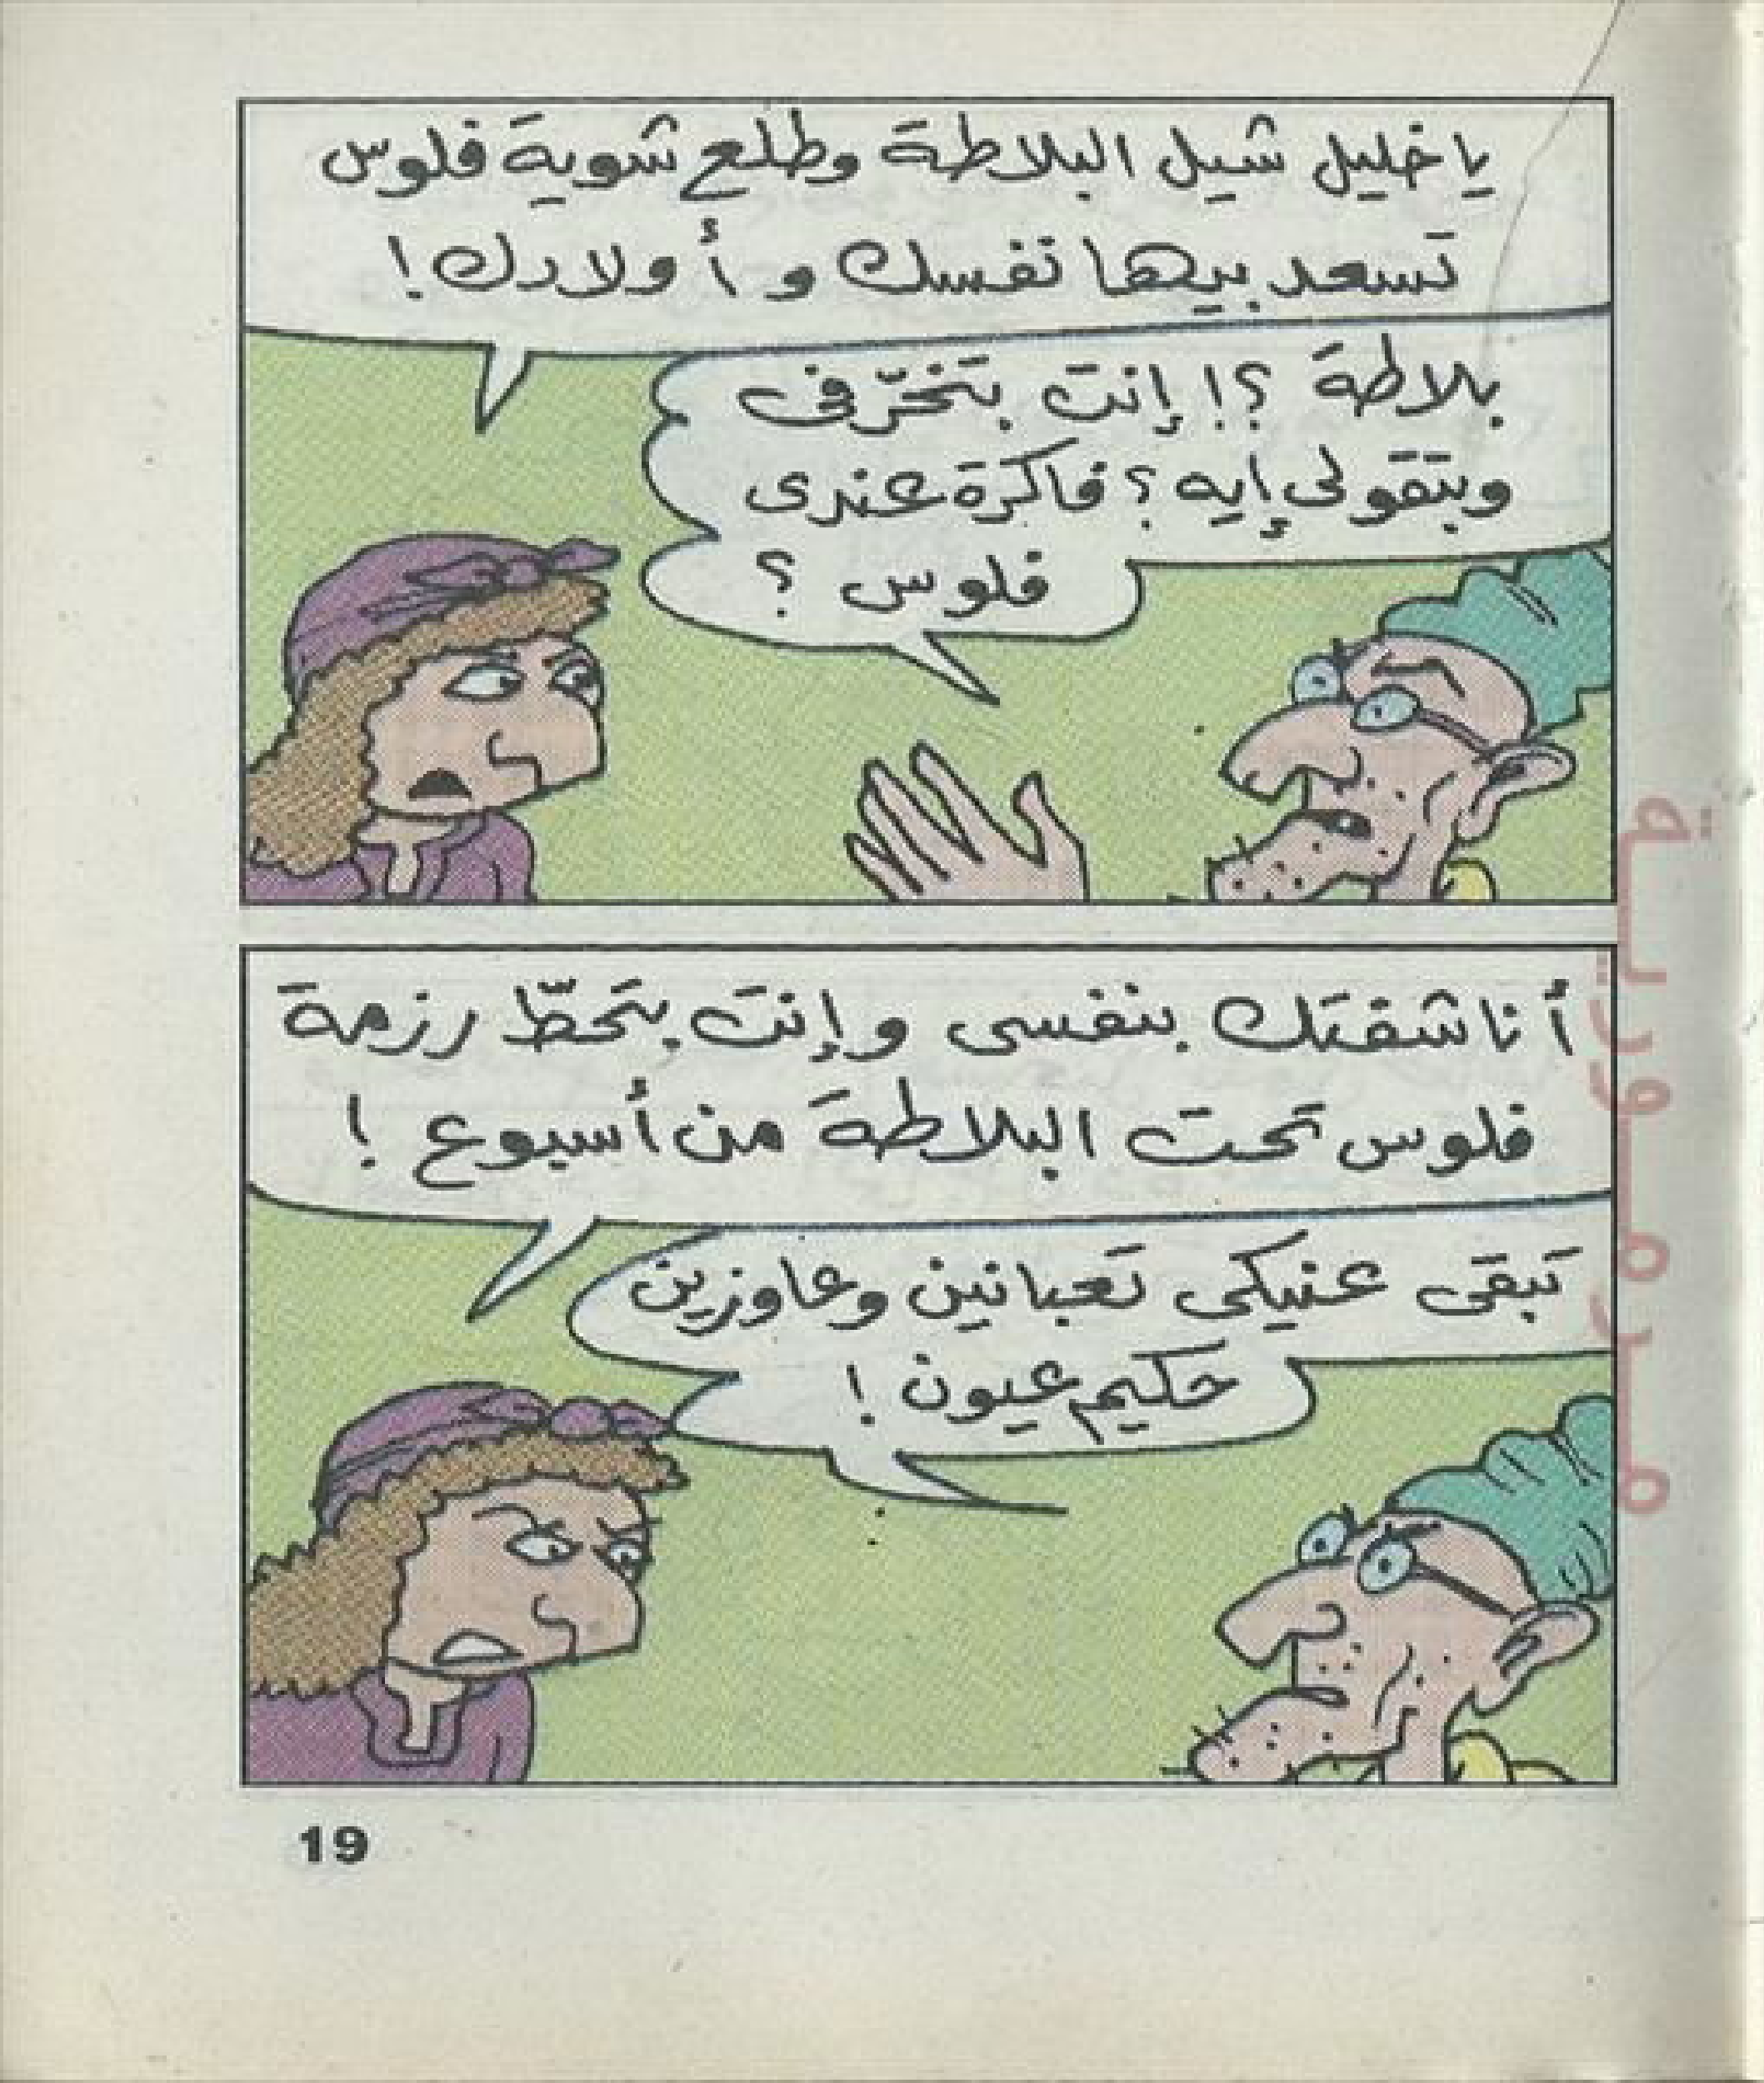 يا خليل شيل البلاطة وطلع شوية فلوس
تسعد بيها نفسك و أولادك!
بلاطة ؟! إنت بتخرّفى
وبتقولى إيه؟ فاكرة عندى
فلوس ؟
أنا شفتك بنفسى وإنت بتحطّ رزمة
فلوس تحت البلاطة من أسبوع !
تبقى عنيكى تعبانين وعاوزين
حكيم عيون !
19